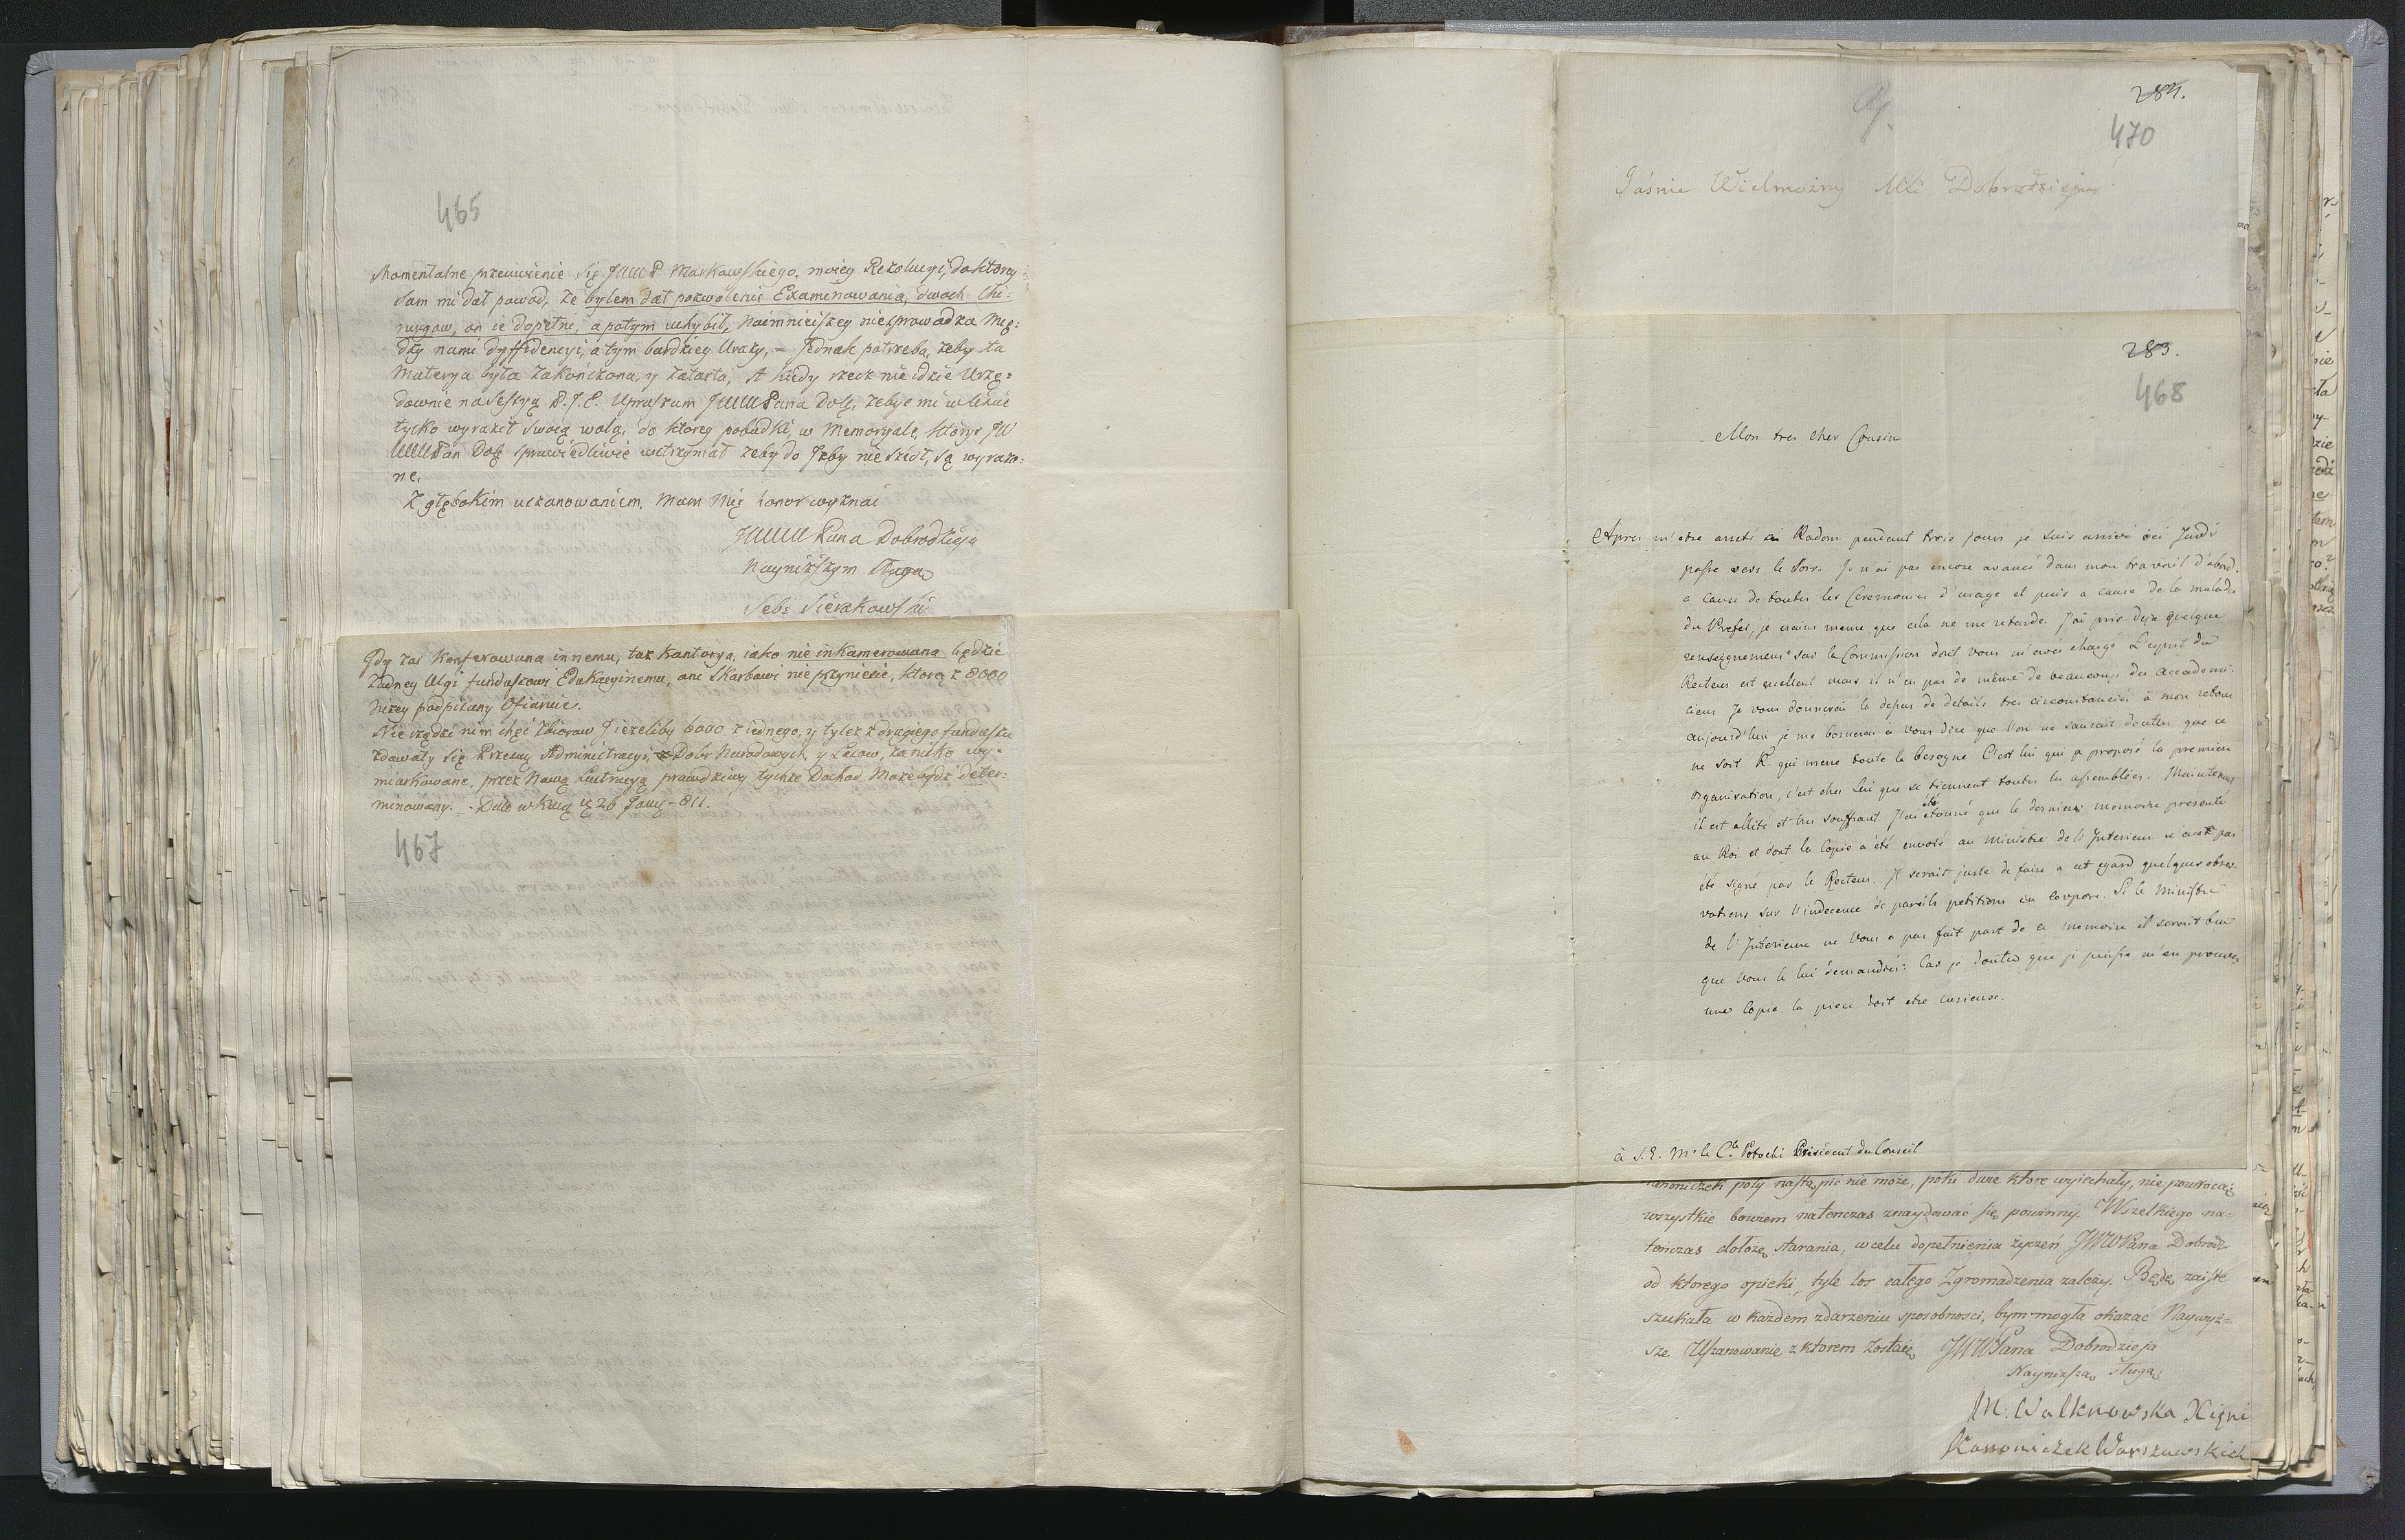 465
Momentalne przeciwienie się JWW P Markowskiego, moiey Rezolucyi, do ktorey
sam mi dał powod, że byłem dał pozwolenie Examinowania, dwoch Chi=
rurgow, on ie dopełnił, a potym uchybił, naimnieiszey niesprowadza mię=
dzy nami dyffidencyi, a tym bardziey Urazy, = Jednak potrzeba, żeby ta
Materya była zakończona, y zatarta, A kiedy rzecz nie idzie Urzę=
downie na Sessyą D.J.E. Upraszam JWW Pana Dob, żebyś mi w liście
tylko wyraził swoią wolą, do ktorey pobudki, w Memoryale, ktory JW
WWPan Dob sprawiedliwie wstrzymał żeby do Izby nie szedł, są wyrażo=
ne.
Z głębokim uszanowaniem, Mam Mię honor wyznać
JWWW Pana Dobrodzieja
Nayniższym Sługą
Seb: Sierakowski
Gdy zaś konferowana innemu, taż Kantorya, iako nie inkamerowana będzie
żadney Ulgi funduszowi Edukacyinemu, ani Skarbowi nie przyniesie, ktorą z 8000
niżey podpisany Ofiaruie.
Nie rządzi nim chęć Zbiorow J ieżeliby 6000 z iednego, y tyleż z drugiego funduszu
zdawały się Przezwy Administracyi, Dobr Narodowych, y Lasow, za nisko wy-
miarkowane, przez Nową Lustracyą prawdziwy tychże Dochod Może bydź deter-
minowany. - Dało w Krak 26 Janu - 811.
467
284.
470
Jaśnie Wielmożny Mci Dobrodzieju
283.
468
Mon tres cher Cousin
Apres m'etre arreté à Radom pendant trois jours je suis arrivé ici Jeudi
passe vers le soir. Je n'ai pas encore avancé dans mon travail d'abord
a cause de toutes les Ceremonies d'usage et puis a cause de la maladie
du Prefet, je crains meme que cela ne me retarde. J'ai pris deja quelque
renseignemens sur la Commission dont vous m'avés chargé L'esprit du
Recteur est excellent mais il n'en pas de même de beaucoup des Academi-
ciens Je vous donnerai la dessus de details tres circonstanciés à mon retour
aujourd'hui je me bornerai à vous dire que l'on ne saurait douter que ce
ne soit K. qui mene toute la besogne C'est lui qui a proposé la premiere
organisation, c'est chez lui que se tiennent toutes les assemblées. Maintenant
il est allité et tres souffrant. J'ai été étonné que le dernier memoire presenté
au Roi et dont la Copie a été envoié au Ministre de l'Interieur n'ait pas
été signé par le Recteur. Il serait juste de faire a cet egard quelques obser-
vations sur l'indecence de pareils petitions en corpore. Si le Ministre
de l'Interieur ne Vous a pas fait part de ce memoire il serait bon
que Vous le lui demandiés: Car je doute que je puisse m'en procurer
une Copie la piece doit etre curieuse.
à S.E. Mr le Cte Potocki President du Conseil
kanoniczek poty nastąpić nie może, póki dwie ktore wyiechały, nie powrocą;
wszystkie bowiem natenczas znaydować się powinny. Wszelkiego na=
tenczas dołożę starania, w celu dopełnienia życzeń JWWPana Dobrodz.
od ktorego opieki, tyle los całego Zgromadzenia zależy. Będę zaiste
szukała w każdem zdarzeniu sposobnosci, bym mogła okazać Naywyż=
sze Uszanowanie z ktorem zostaię JWWPana Dobrodzieja
Nayniższą sługą
M: Walknowska Xięni
Kanoniczek Warszawskich